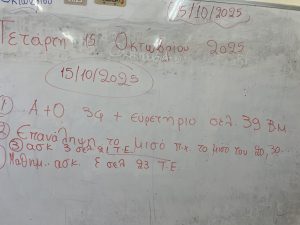 15/10/2025
Τετάρτη 15 Οκτωβρίου 2025
15/10/2025
① Α+Ο 3φ + ευρετήριο σελ. 39 Β.Μ.
② Επανάληψη το μισό π.χ. το μισό του 20, 30...
③ ασκ 3 σελ 21 Τ.Ε.
Μαθημ.. ασκ. ε σελ 23 Τ.Ε.